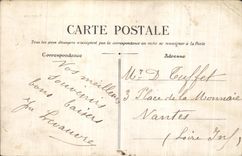 CARTE POSTALE
Tous les pays étrangers n'acceptent pas la correspondance au recto se renseigner à la Poste
Correspondance
Adresse
Vos meilleurs
souvenirs
bons baisers
Mr D. Tuffet
3 Place de la Monnaie
Nantes
(Loire Inf)